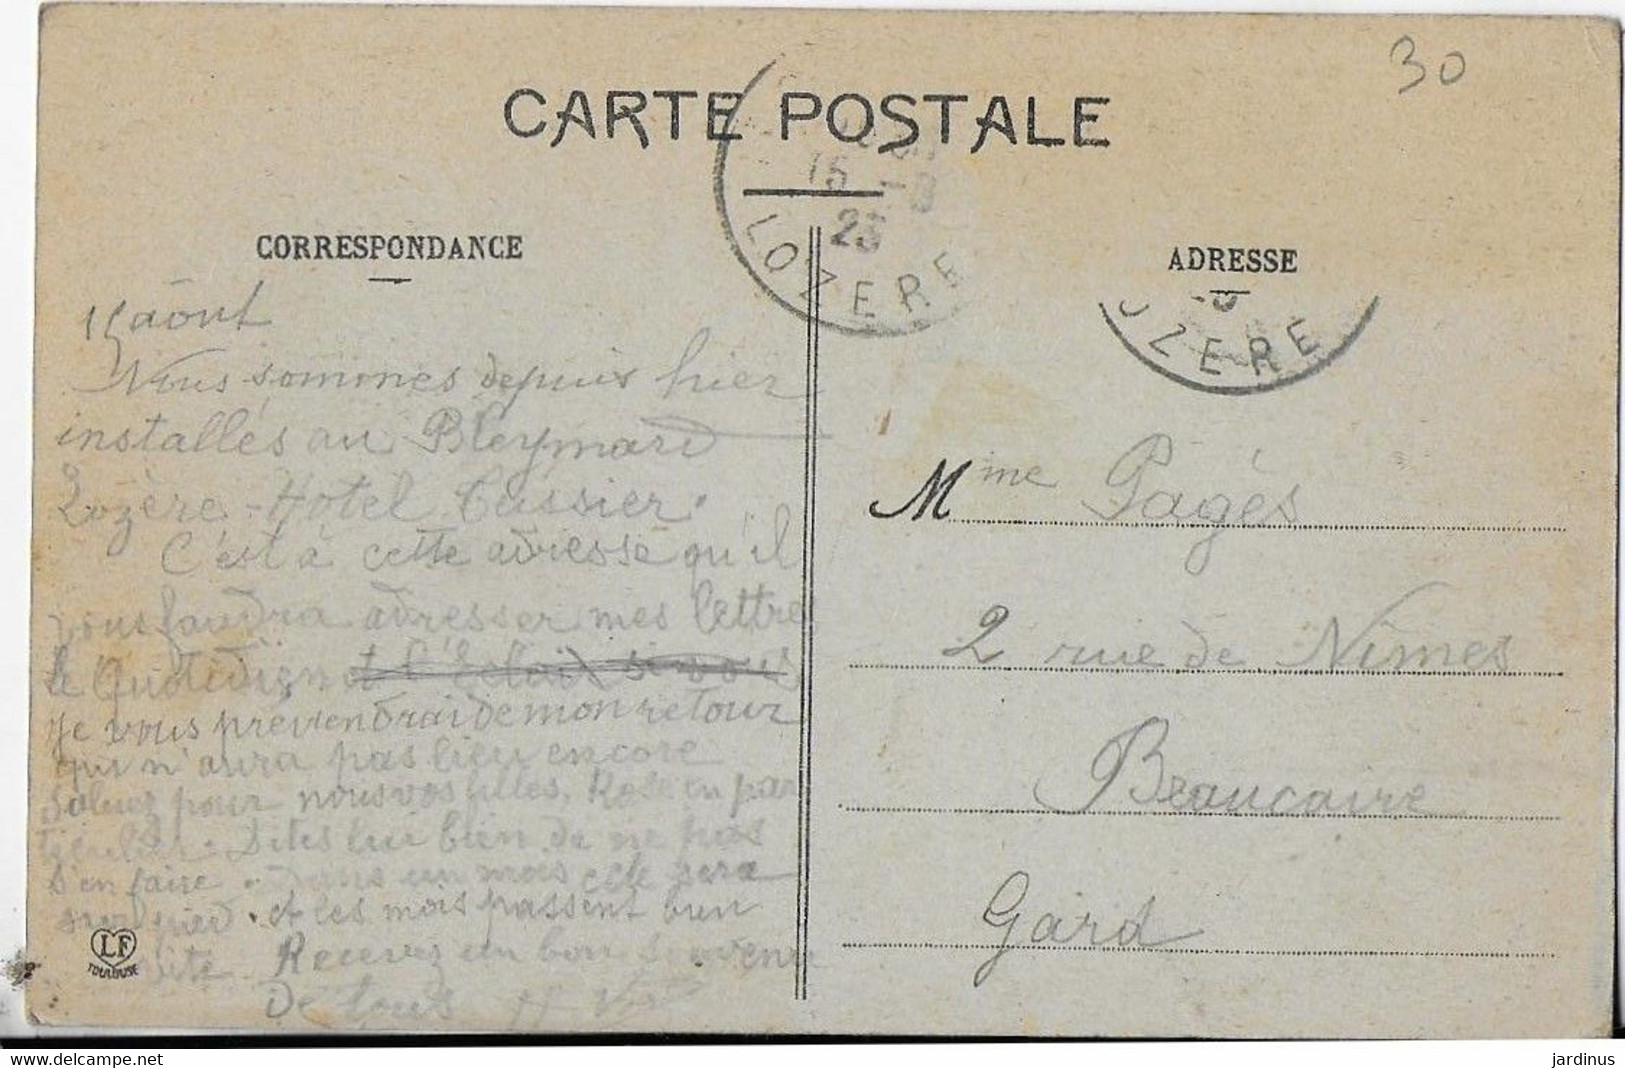 30
CARTE POSTALE
15 -8
23
LOZERE
CORRESPONDANCE
ADRESSE
OZERE
15 août
Nous sommes depuis hier
installés au Bleymard
Lozère - Hotel Teissier.
C'est à cette adresse qu'il
vous faudra adresser mes lettres
le Quotidien et l'Eclair si vous
je vous préviendrai de mon retour
qui n'aura pas lieu encore
Saluez pour nous vos filles, Rose en par
ticulier. Dites lui bien de ne pas
s'en faire. Dans un mois elle sera
sur pied. et les mois passent bien
vite. Recevez un bon souvenir
De tous
Mme Pagès
2 rue de Nimes
Beaucaire
Gard
LF
TOULOUSE
delcampe.net
jardinus